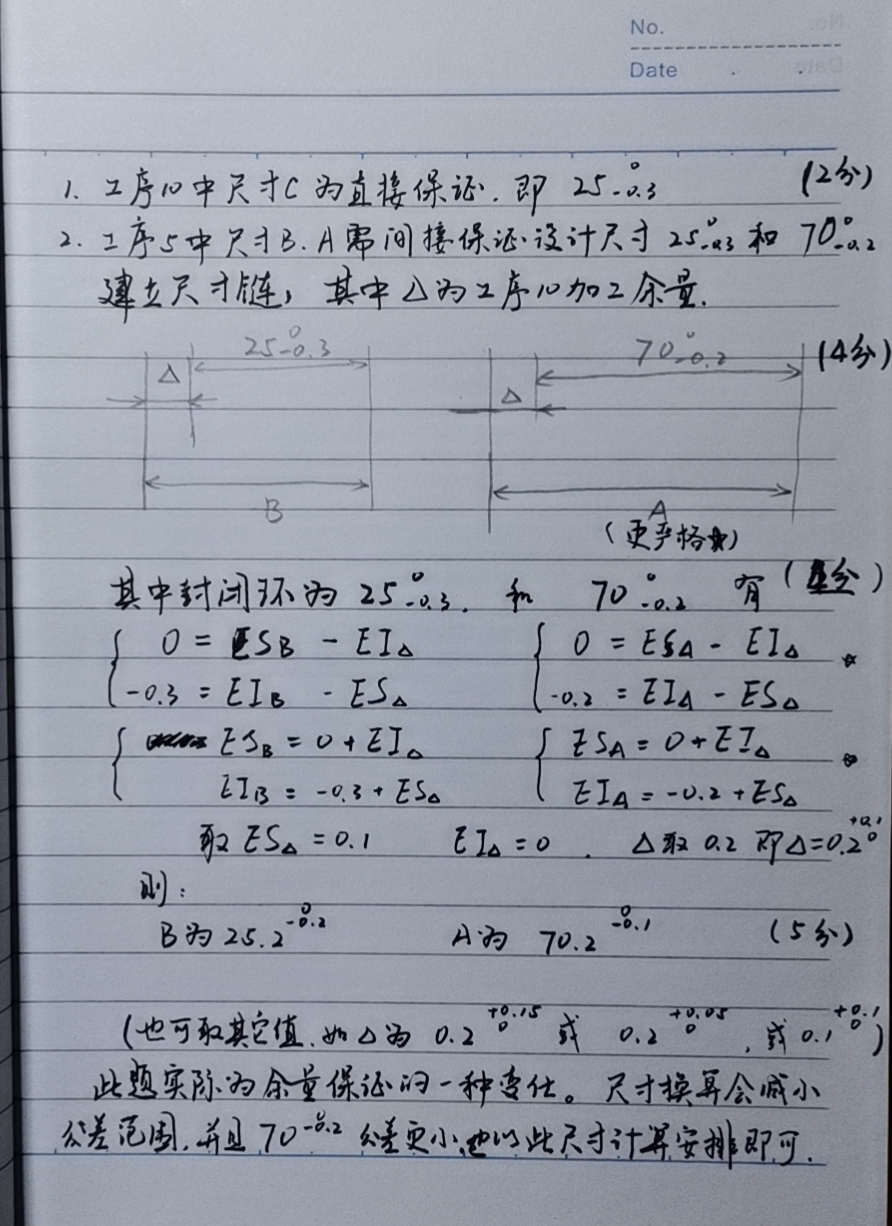 No.
Date . .
1. 工序10中尺寸C为直接保证. 即 25 0 -0.3 (2分)
2. 工序5中尺寸B.A需间接保证设计尺寸 25 0 -0.3 和 70 0 -0.2
建立尺寸链, 其中Δ为工序10加工余量.
25 0 -0.3 70 0 -0.2 (4分)
Δ Δ
B A
(更严格)
其中封闭环为 25 0 -0.3. 和 70 0 -0.2 有 (分)
0 = ESB - EIΔ 0 = ESA - EIΔ
-0.3 = EIB - ESΔ -0.2 = EIA - ESΔ
ESB = 0 + EIΔ ESA = 0 + EIΔ
EIB = -0.3 + ESΔ EIA = -0.2 + ESΔ
取 ESΔ = 0.1 EIΔ = 0 . Δ取 0.2 即Δ=0.2 +0.1 0
则:
B为 25.2 0 -0.2 A为 70.2 0 -0.1 (5分)
(也可取其它值. 如Δ为 0.2 +0.15 0 或 0.2 +0.05 0 , 或 0.1 +0.1 0 )
此题实际为余量保证的一种变任。尺寸换算会减小
公差范围, 并且 70 0 -0.2 公差更小, 也以此尺寸计算安排即可.